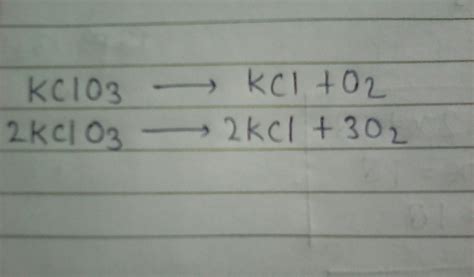 KClO3 → KCl + O2
2KClO3 → 2KCl + 3O2